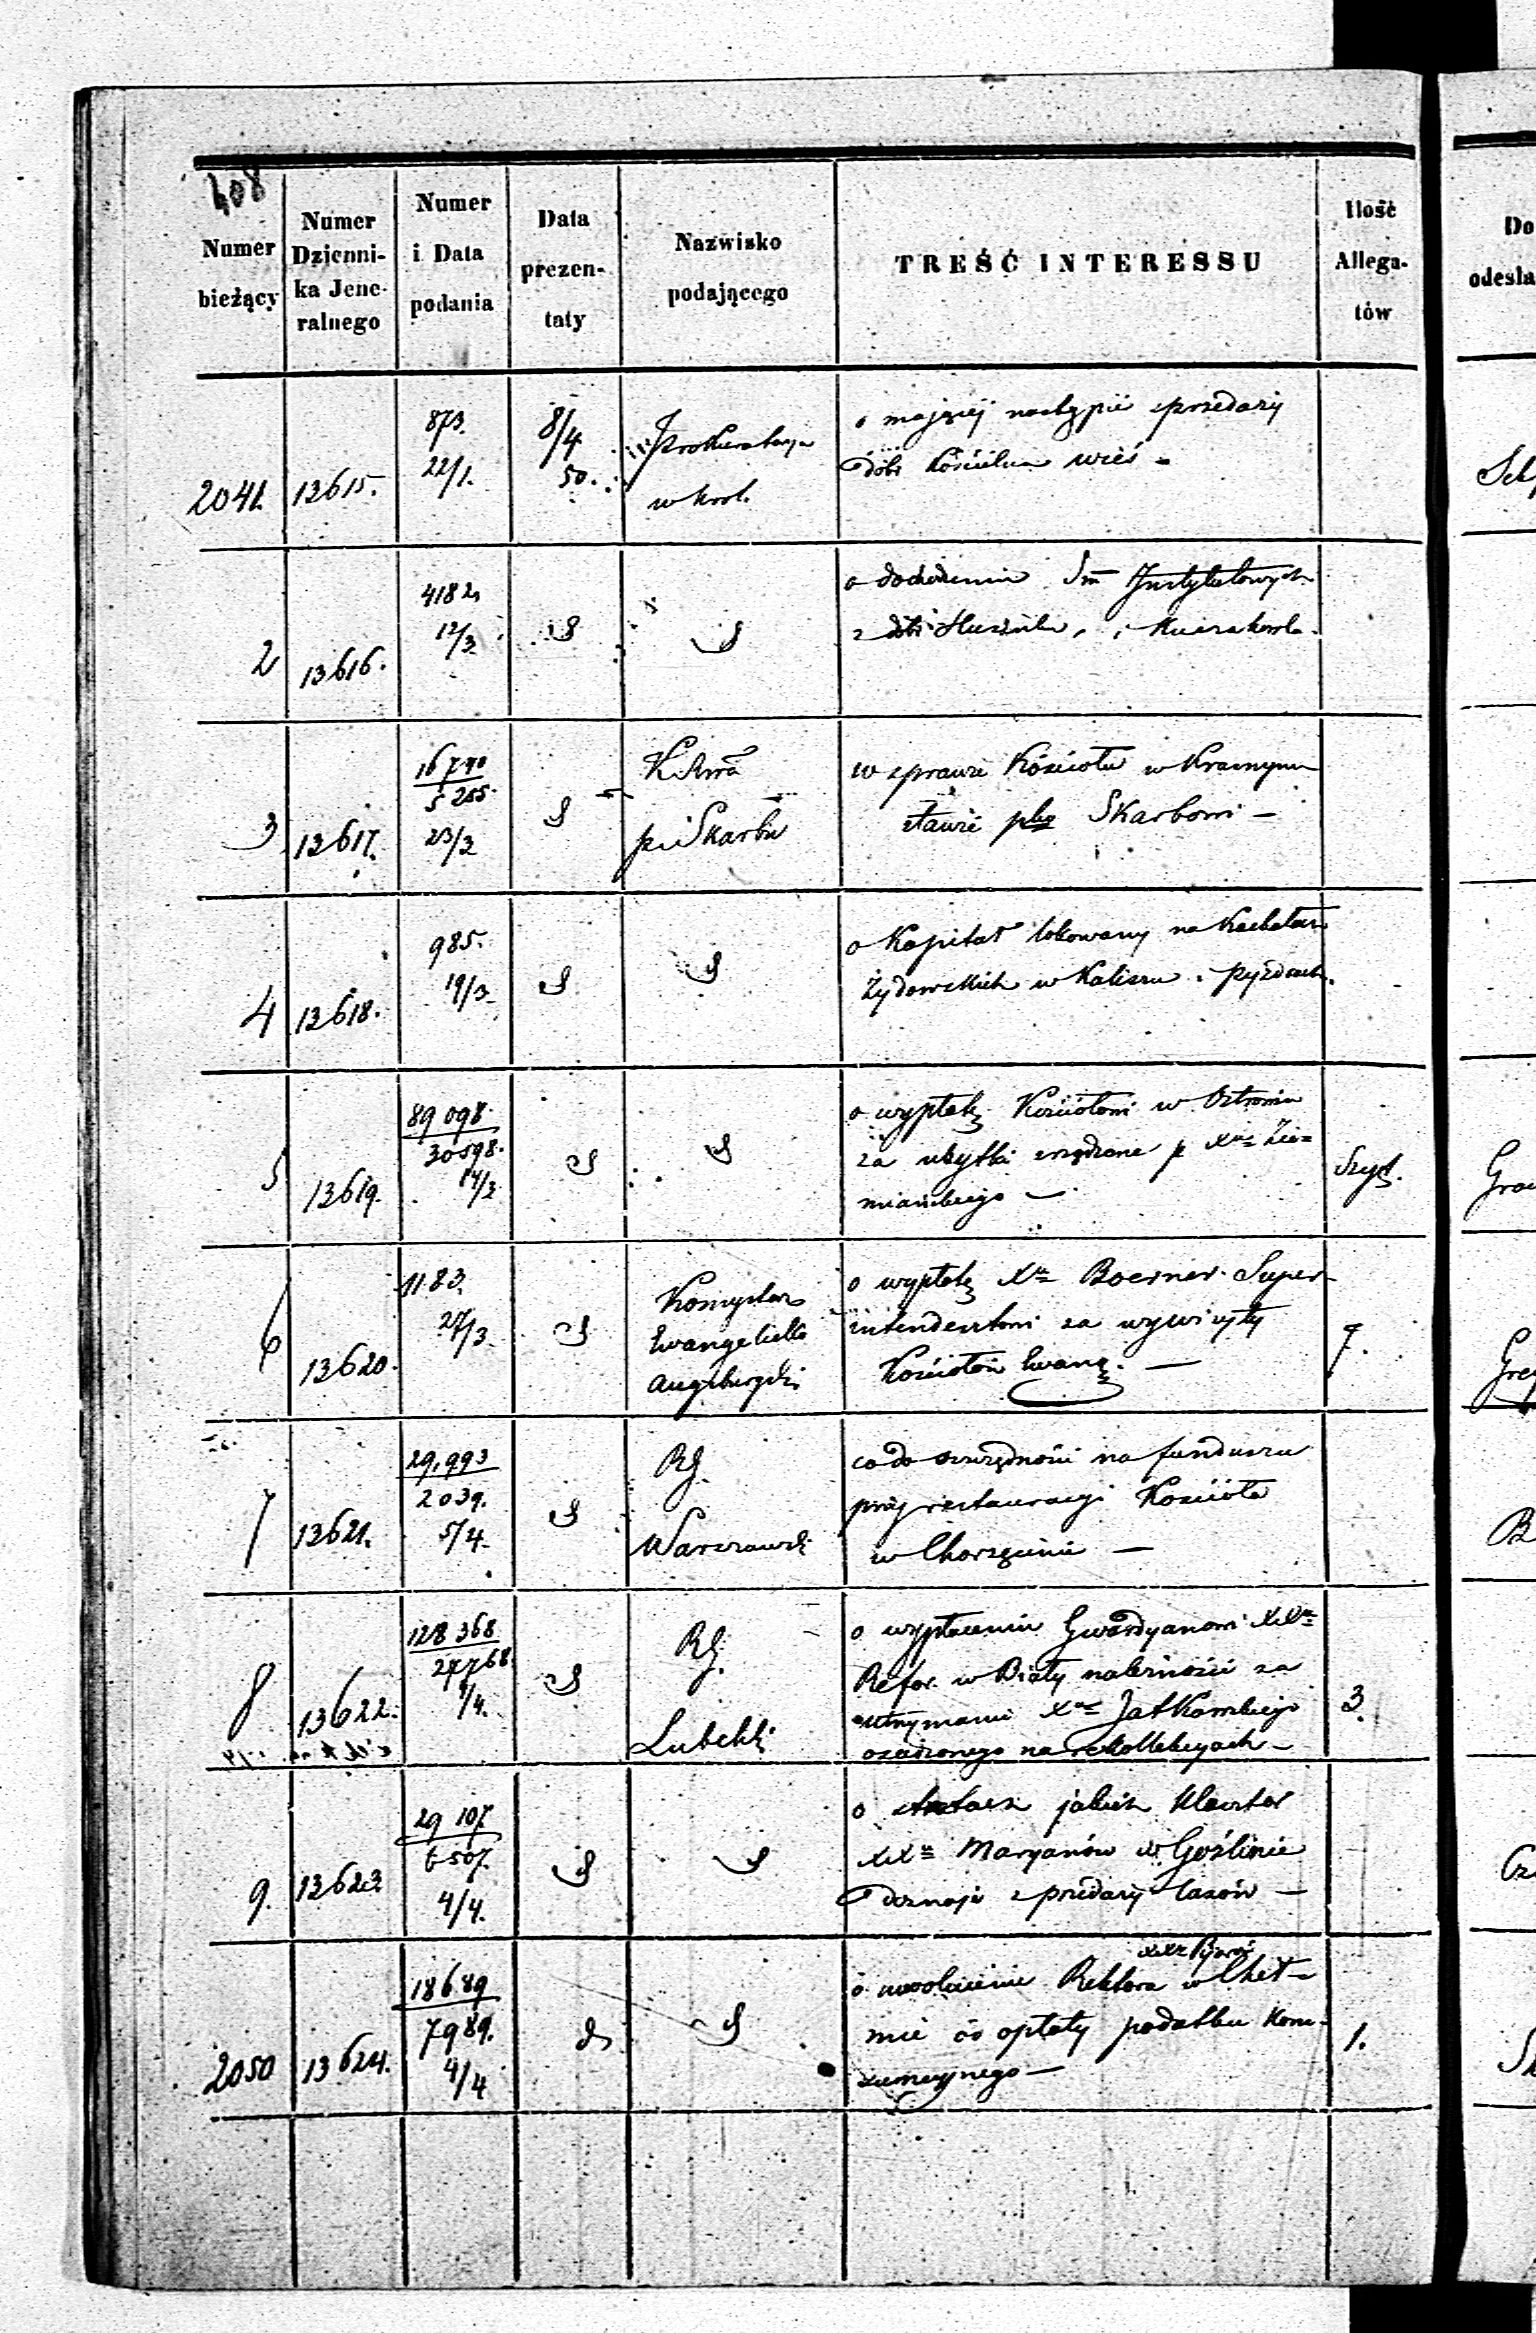 408
Numer bieżący
Numer Dzienni-
ka Jene-
ralnego
Numer
i Data
podania
Data
prezen-
taty
Nazwisko
podającego
TREŚĆ INTERESSU
Ilość
Allega-
tów
Do
odesła
2041. 13615. 873. 22/1. 8/4 50. Prokuratorya
w Król.
o mającej nastąpić sprzedaży
dóbr Kościelna wieś -
2 13616. 4182. 12/3.
o dochodzeniu Sm Instytutowych
z dóbr
3 13617. 16790 5255. 23/3
K. Rwa
p. i Skarbu
w sprawie Kościoła w Krasnym-
stawie plko Skarbowi -
4 13618. 985. 19/3.
o Kapitał lokowany na Kahałach
Żydowskich w Kaliszu i Pyzdrach.
5 13619. 89098. 30598. 14/3
o wypłatę Kościołowi w
za ubytki zrządzone p Xa Zie-
miańskiego -
6 13620. 1183. 27/3.
Konsystorz
Ewangelicko
Augsburgski
o wypłatę Xu Boerner Super-
intendentowi za wizyty
Kościołów Ewang. - 7.
7 13621. 29,993 2039. 5/4.
RG.
Warszawski
co do oszczędności na funduszu
przy restauracyi Kościoła
w Chorzęcinie -
8 13622. 128368 27768 1/4.
RG.
Lubelski
o wypłacenie Gwardyanowi XXu
Refor. w Biały należności za
utrzymanie Xa Jatkowskiego
osadzonego na rekollekcyach - 3.
9. 13623 29107. 6507. 4/4.
o stratach jakich Klasztor
XXu Maryanów w Goźlinie
doznaje z przedaży lasów -
2050 13624. 18689 7989. 4/4
XXu Pijarów
o uwolnienie Rektora w Cheł-
mie od opłaty podatku kon-
sumcyjnego - 1.